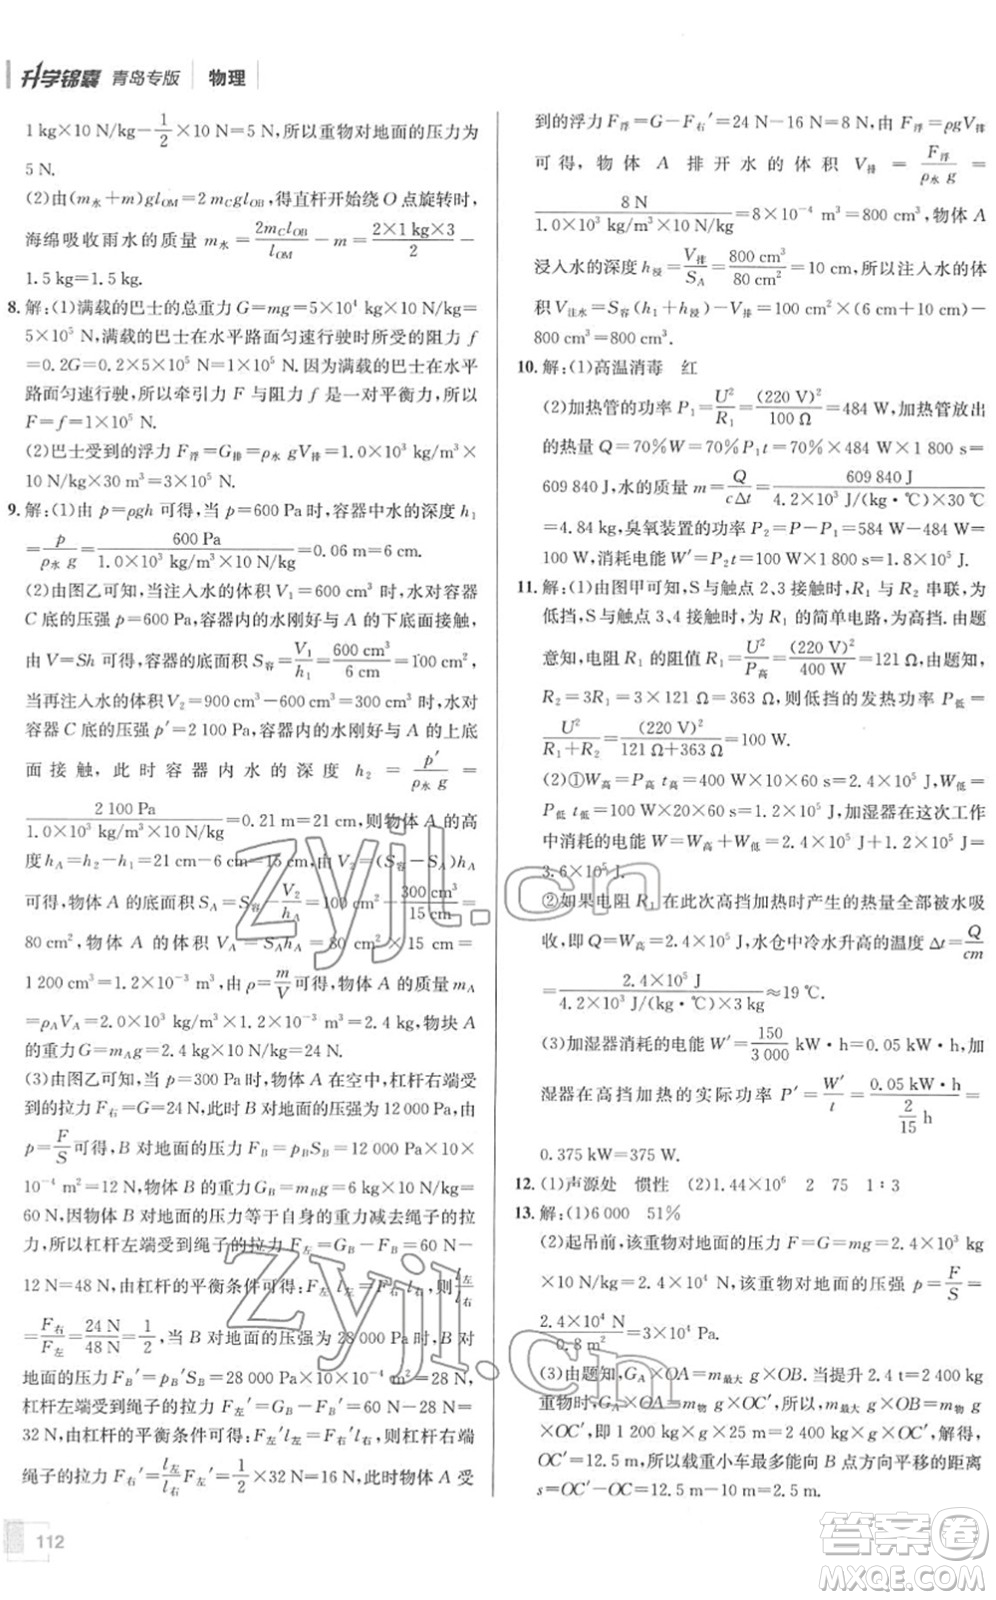 升学锦囊 青岛专版 物理
1 kg×10 N/kg−1/2×10 N=5 N,所以重物对地面的压力为
5 N.
(2)由(m水+m)glOM=2 mCglOB,得直杆开始绕 O 点旋转时,
海绵吸收雨水的质量 m水=2mClOB/lOM−m=2×1 kg×3/2−
1.5 kg=1.5 kg.
8. 解:(1)满载的巴士的总重力 G=mg=5×10⁴ kg×10 N/kg=
5×10⁵ N.满载的巴士在水平路面匀速行驶时所受的阻力 f
=0.2G=0.2×5×10⁵ N=1×10⁵ N.因为满载的巴士在水平
路面匀速行驶,所以牵引力 F 与阻力 f 是一对平衡力,所以
F=f=1×10⁵ N.
(2)巴士受到的浮力 F浮=G排=ρ水 gV排=1.0×10³ kg/m³×10
N/kg×30 m³=3×10⁵ N.
9. 解:(1)由 p=ρgh 可得,当 p=600 Pa时,容器中水的深度 h₁
=p/ρ水 g=600 Pa/1.0×10³ kg/m³×10 N/kg=0.06 m=6 cm.
(2)由图乙可知,当注入水的体积 V₁=600 cm³ 时,水对容器
C 底的压强 p=600 Pa,容器内的水刚好与 A 的下底面接触,
由 V=Sh 可得,容器的底面积 S容=V₁/h₁=600 cm³/6 cm=100 cm²,
当再注入水的体积 V₂=900 cm³−600 cm³=300 cm³ 时,水对
容器 C 底的压强 p′=2 100 Pa,容器内的水刚好与 A 的上底
面接触,此时容器内水的深度 h₂=p′/ρ水 g=
2 100 Pa/1.0×10³ kg/m³×10 N/kg=0.21 m=21 cm,则物体 A 的高
度 hA=h₂−h₁=21 cm−6 cm=15 cm,由 V₂=(S容−SA)hA
可得,物体 A 的底面积 SA=S容−V₂/hA=100 cm²−300 cm³/15 cm=
80 cm²,物体 A 的体积 VA=SAhA=80 cm²×15 cm=
1 200 cm³=1.2×10⁻³ m³,由 ρ=m/V可得,物体 A 的质量 mA
=ρAVA=2.0×10³ kg/m³×1.2×10⁻³ m³=2.4 kg,物块 A
的重力 G=mAg=2.4 kg×10 N/kg=24 N.
(3)由图乙可知,当 p=300 Pa时,物体 A 在空中,杠杆右端受
到的拉力 F右=G=24 N,此时 B 对地面的压强为 12 000 Pa,由
p=F/S可得,B 对地面的压力 FB=pBSB=12 000 Pa×10×
10⁻⁴ m²=12 N,物体 B 的重力GB=mBg=6 kg×10 N/kg=
60 N,因物体 B 对地面的压力等于自身的重力减去绳子的拉
力,所以杠杆左端受到绳子的拉力 F左=GB−FB=60 N−
12 N=48 N,由杠杆的平衡条件可得:F左 l左=F右 l右,则l左/l右
=F右/F左=24 N/48 N=1/2,当 B 对地面的压强为28 000 Pa时,B 对
地面的压力 FB′=pB′SB=28 000 Pa×10×10⁻⁴ m²=28 N,
杠杆左端受到绳子的拉力 F左′=GB−FB′=60 N−28 N=
32 N,由杠杆的平衡条件可得:F左′l左=F右′l右,则杠杆右端
绳子的拉力 F右′=l左/l右F左′=1/2×32 N=16 N,此时物体 A 受
到的浮力 F浮=G−F右′=24 N−16 N=8 N,由 F浮=ρgV排
可得,物体 A 排开水的体积 V排=F浮/ρ水 g=
8 N/1.0×10³ kg/m³×10 N/kg=8×10⁻⁴ m³=800 cm³,物体 A
浸入水的深度 h浸=V排/SA=800 cm³/80 cm²=10 cm,所以注入水的体
积 V注水=S容(h₁+h浸)−V排=100 cm²×(6 cm+10 cm)−
800 cm³=800 cm³.
10. 解:(1)高温消毒 红
(2)加热管的功率 P₁=U²/R₁=(220 V)²/100 Ω=484 W,加热管放出
的热量 Q=70%W=70%P₁t=70%×484 W×1 800 s=
609 840 J,水的质量 m=Q/cΔt=609 840 J/4.2×10³ J/(kg·℃)×30 ℃
=4.84 kg,臭氧装置的功率 P₂=P−P₁=584 W−484 W=
100 W,消耗电能 W′=P₂t=100 W×1 800 s=1.8×10⁵ J.
11. 解:(1)由图甲可知,S与触点 2、3接触时,R₁ 与 R₂ 串联,为
低挡,S与触点 3、4接触时,为 R₁ 的简单电路,为高挡.由题
意知,电阻 R₁ 的阻值 R₁=U²/P高=(220 V)²/400 W=121 Ω,由题知,
R₂=3R₁=3×121 Ω=363 Ω,则低挡的发热功率 P低=
U²/R₁+R₂=(220 V)²/121 Ω+363 Ω=100 W.
(2)①W高=P高 t高=400 W×10×60 s=2.4×10⁵ J,W低=
P低 t低=100 W×20×60 s=1.2×10⁵ J,加湿器在这次工作
中消耗的电能 W=W高+W低=2.4×10⁵ J+1.2×10⁵ J=
3.6×10⁵ J.
②如果电阻 R₁在此次高挡加热时产生的热量全部被水吸
收,即 Q=W高=2.4×10⁵ J,水仓中冷水升高的温度 Δt=Q/cm
=2.4×10⁵ J/4.2×10³ J/(kg·℃)×3 kg≈19 ℃.
(3)加湿器消耗的电能 W′=150/3 000 kW·h=0.05 kW·h,加
湿器在高挡加热的实际功率 P′=W′/t=0.05 kW·h/(2/15 h)=
0.375 kW=375 W.
12. (1)声源处 惯性 (2)1.44×10⁶ 2 75 1∶3
13. 解:(1)6 000 51%
(2)起吊前,该重物对地面的压力 F=G=mg=2.4×10³
kg×10 N/kg=2.4×10⁴ N,该重物对地面的压强 p=F/S=
2.4×10⁴ N/0.8 m²=3×10⁴ Pa.
(3)由题知,GA×OA=m最大 g×OB.当提升 2.4 t的
重物时,GA×OA=m物 g×OC′.所以,m最大 g×OB=m物
g×OC′,即 1 200 kg×g×25 m=2 400 kg×g×OC′,解得
OC′=12.5 m,所以,载重小车最多能向 B 点方向平移的距离
s=OC′−OC=12.5 m−10 m=2.5 m.
112
zyjl.cn
zyjl.cn
答案卷
MXQE.COM